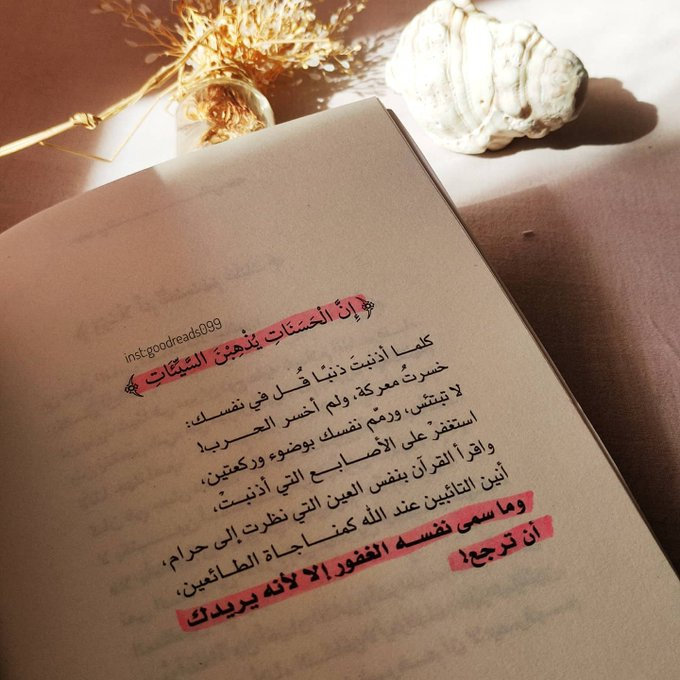 ﴿إِنَّ الْحَسَنَاتِ يُذْهِبْنَ السَّيِّئَاتِ﴾
inst:goodreads099
كلما أذنبتَ ذنبًا قُل في نفسك:
خسرتُ معركة، ولم أخسر الحرب!
لا تبتئس، ورمّم نفسك بوضوء وركعتين،
استغفرْ على الأصابع التي أذنبتْ،
واقرأ القرآن بنفس العين التي نظرت إلى حرام،
أنين التائبين عند الله كمناجاة الطائعين،
وما سمى نفسه الغفور إلا لأنه يريدك
أن ترجع!